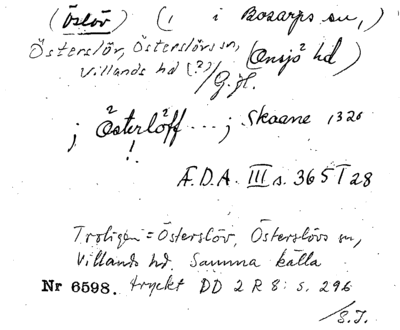 (Öslöv) (i i Bosarps sn,)
Österslöv, Österslövs sn, (Onsjö hd)
Villands hd (?) /G.H.
j Österlöff ... j Skaane 1326
!
Æ.D.A. III s. 365 I 28
Troligen = Österslöv, Österslövs sn,
Villands hd. Samma källa
Nr 6598. tryckt DD 2 R 8: s. 296
/S.I.